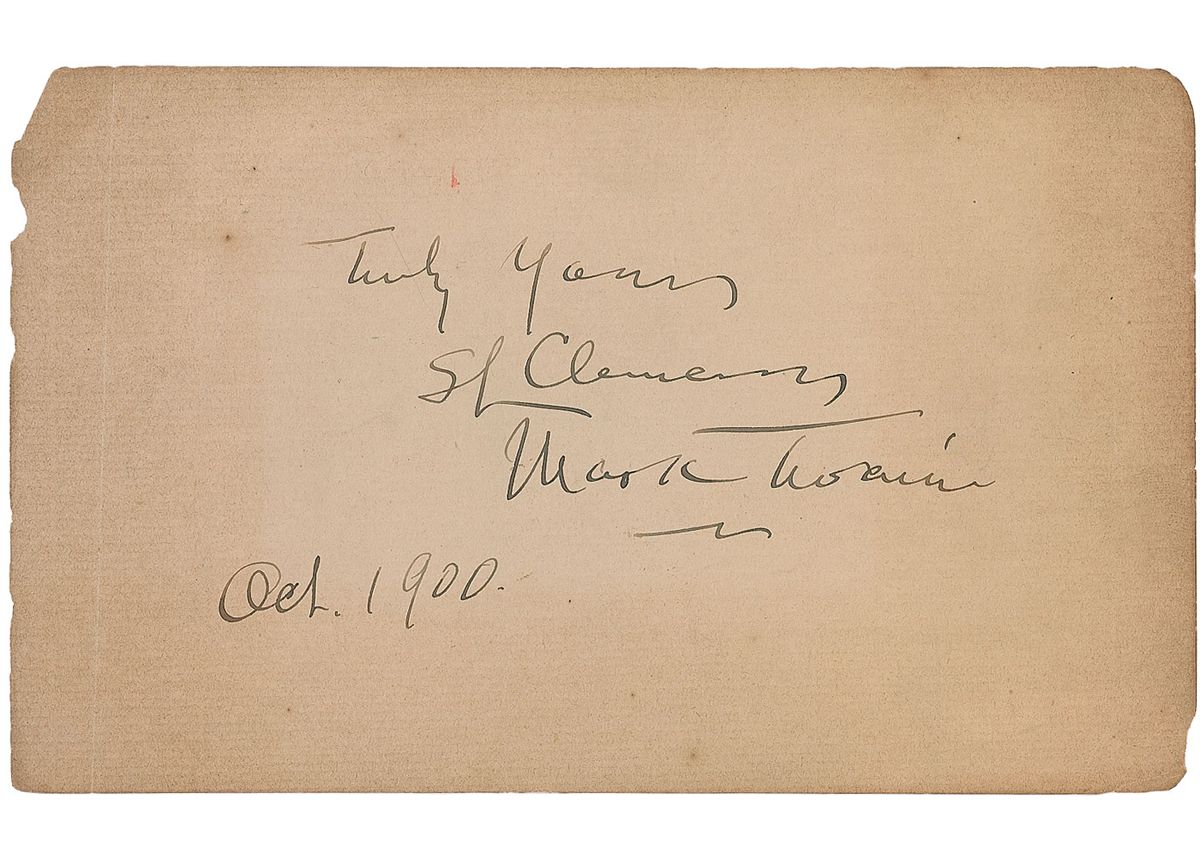 Truly Yours
SL Clemens
Mark Twain
Oct. 1900.